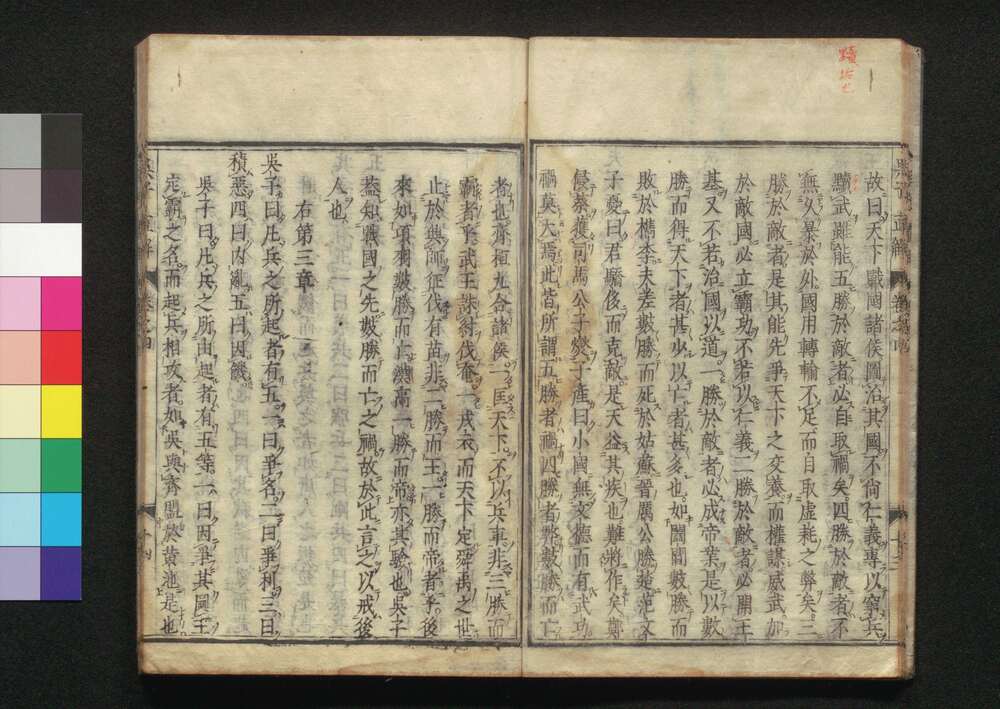 故曰天下戰國諸侯圖治其國不尚仁義專以窮兵
黷武雖能五勝於敵者必自取禍矣四勝於敵者不
無久暴於外國用轉輸不足而自取虛耗之弊矣三
勝於敵者是其能先爭天下之交養而權謀威武加
於敵國必立霸功不若以仁義二勝於敵者必開王
基又不若治國以道一勝於敵者必成帝業是以數
勝而得天下者甚少以亡者甚多也如闔閭數勝而
敗於檇李夫差數勝而死於姑蘇晉厲公勝楚范文
子憂曰君驕侈而克敵是天益其疾也難將作矣鄭
侵蔡獲司馬公子燮子產曰小國無文德而有武功
禍莫大焉此皆所謂五勝者禍四勝者弊數勝而亡
者也齊桓九合諸侯一匡天下不以兵車非三勝而
霸者乎武王誅紂伐奄一戎衣而天下定舜禹之世
止於興師征伐有苗非二勝而王一勝而帝者乎後
來如項羽數勝而亡漢高一勝而帝亦其驗也吳子
蓋知戰國之先數勝而亡之禍故於此言之以戒後
人也
右第三章
吳子曰凡兵之所起者有五一曰爭名二曰爭利三曰
積惡四曰內亂五曰因饑
吳子曰凡兵之所由起者有五等一曰因爭其圖王
定霸之名而起兵相攻者如吳與齊盟於黃池是也